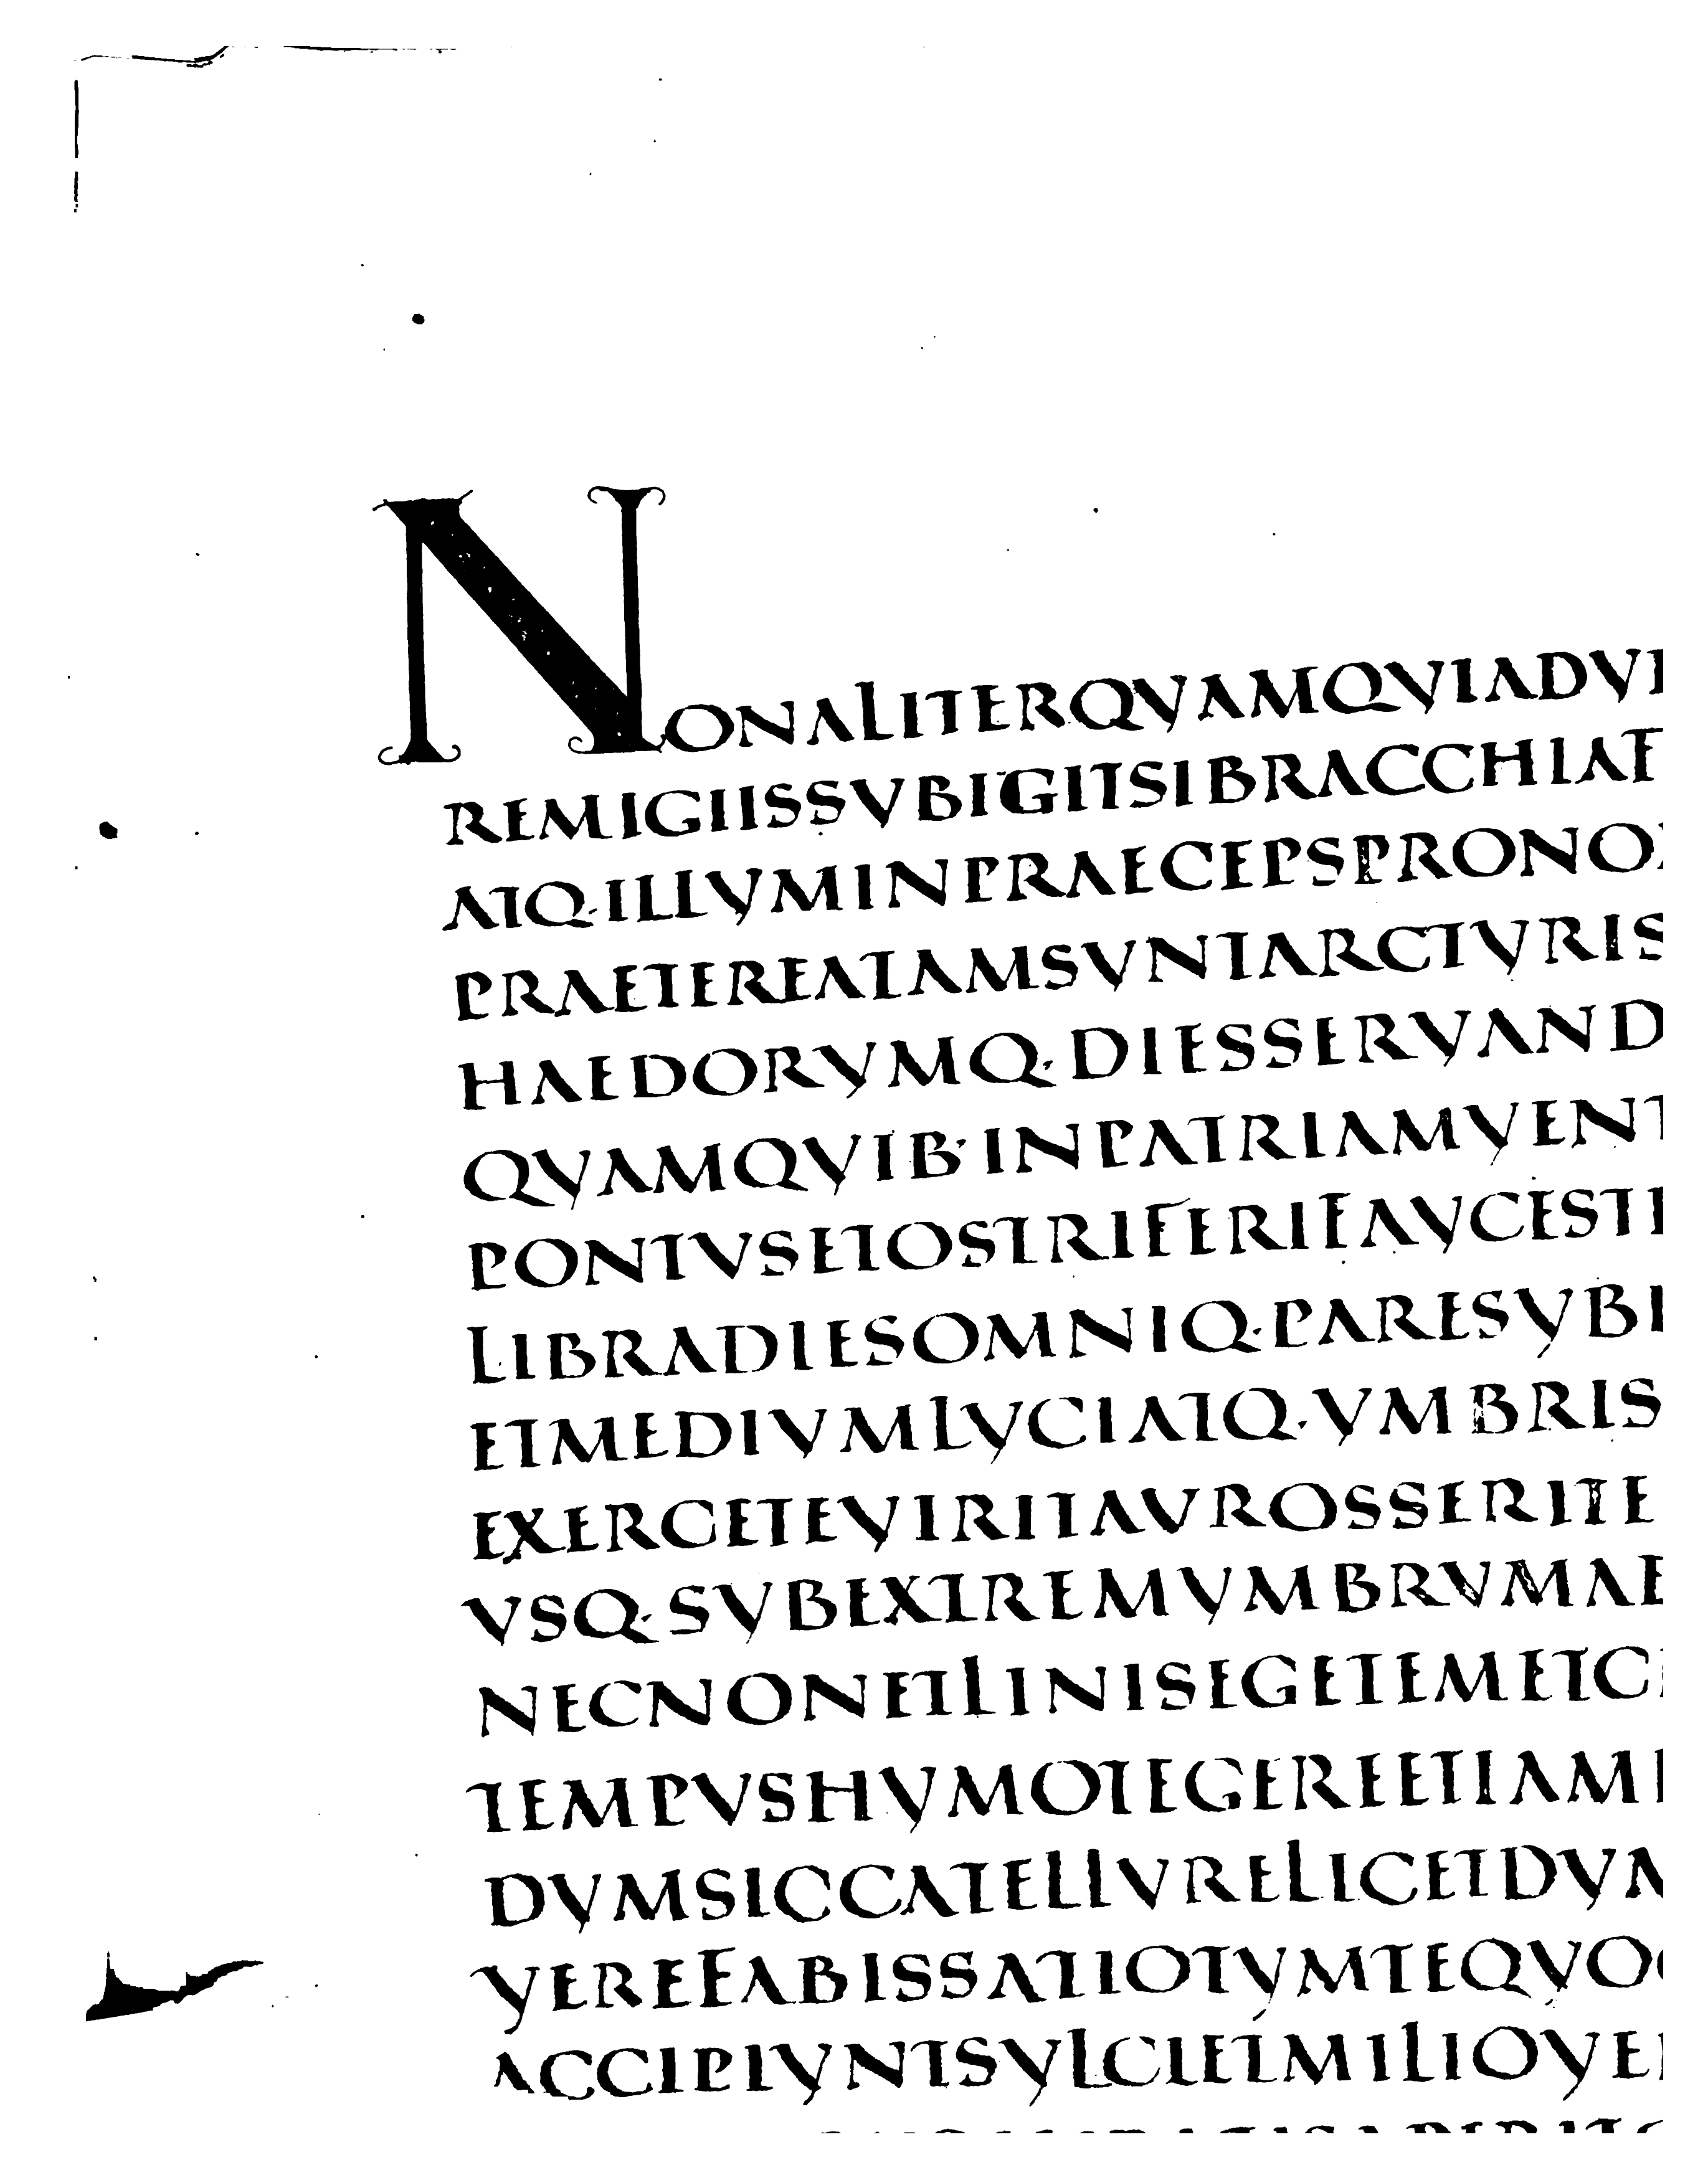 NONALITERQVAMQVIADV
REMIGIISSVBIGITSIBRACCHIAF
ATQ·ILLVMINPRAECEPSPRONO
PRAETEREATAMSVNTARCTVRIS
HAEDORVMQ·DIESSERVAND
QVAMQVIB·INPATRIAMVENT
PONTVSETOSTRIFERIFAVCEST
LIBRADIESOMNIQ·PARESVBI
ETMEDIVMLVCIATQ·VMBRIS
EXERCETEVIRITAVROSSERITE
VSQ·SVBEXTREMVMBRVMAE
NECNONETLINISEGETEMETC
TEMPVSHVMOTEGEREETIAM
DVMSICCATELLVRELICETDVM
VEREFABISSATIOTVMTEQVO
ACCIPIVNTSVLCIETMILIOVE